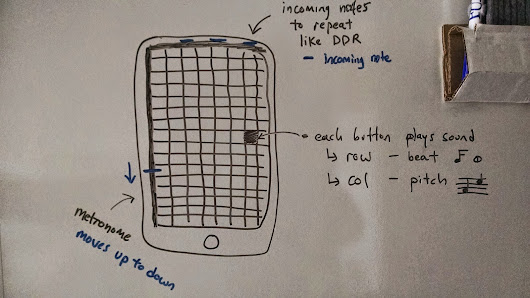 incoming notes
to repeat
like DDR
– Incoming note
• each button plays sound
↳ row – beat
↳ col – pitch
metronome
moves up to down